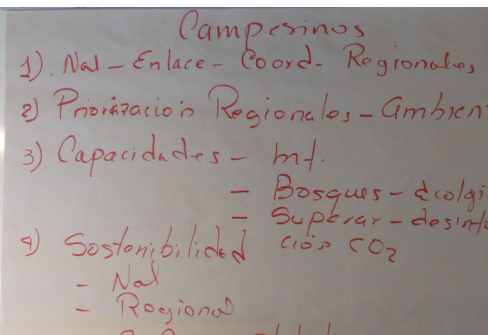 Campesinos
1). Nal - Enlace - Coord - Regionales
2) Priorización Regionales - Ambien
3) Capacidades - Mf.
- Bosques - Ecolgi
- Superar - desinfo
ción CO2
4) Sostenibilidad
- Nal
- Regional